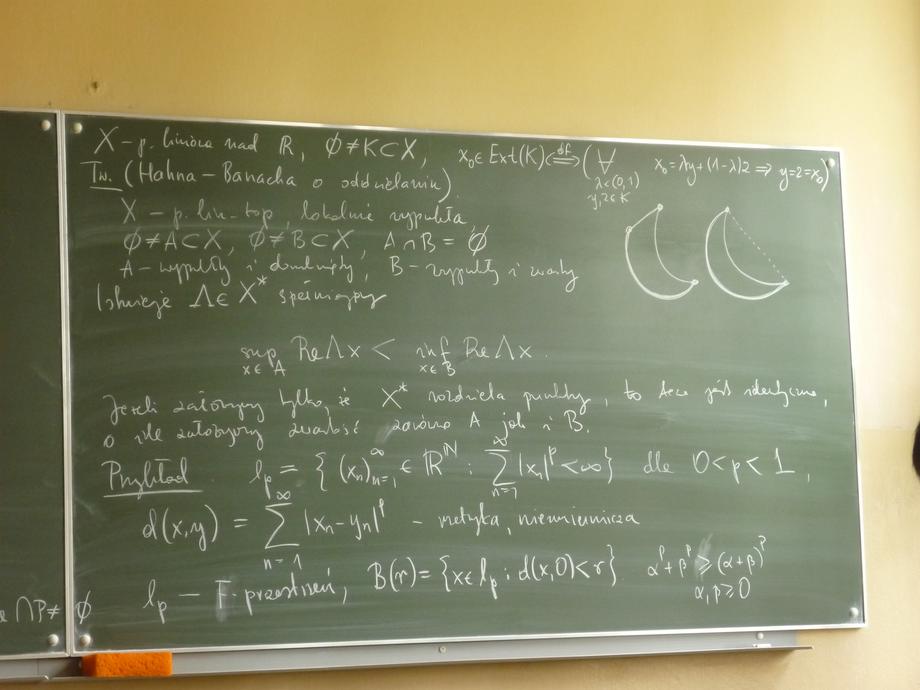 X – p. liniowa nad ℝ, ∅≠K⊂X, x₀∈Ext(K) ⇔^{df} (∀_{λ∈(0,1) y,z∈K} x₀=λy+(1-λ)z ⇒ y=z=x₀)
Tw. (Hahna–Banacha o oddzielaniu)
X – p. lin-top, lokalnie wypukła
∅≠A⊂X, ∅≠B⊂X, A∩B=∅
A – wypukły i domknięty, B – wypukły i zwarty
Istnieje Λ∈X* spełniający
sup_{x∈A} ReΛx < inf_{x∈B} ReΛx.
Jeżeli założymy tylko, że X* rozdziela punkty, to teza jest identyczna,
o ile założymy zwartość zarówno A jak i B.
Przykład l_p = {(x_n)_{n=1}^∞ ∈ ℝ^ℕ : ∑_{n=1}^∞ |x_n|^p < ∞} dla 0<p<1,
d(x,y) = ∑_{n=1}^∞ |x_n-y_n|^p – metryka, niezmiennicza
l_p – F-przestrzeń, B(r)={x∈l_p : d(x,0)<r} α^p+β^p ≥ (α+β)^p
α,β≥0
∩P≠∅